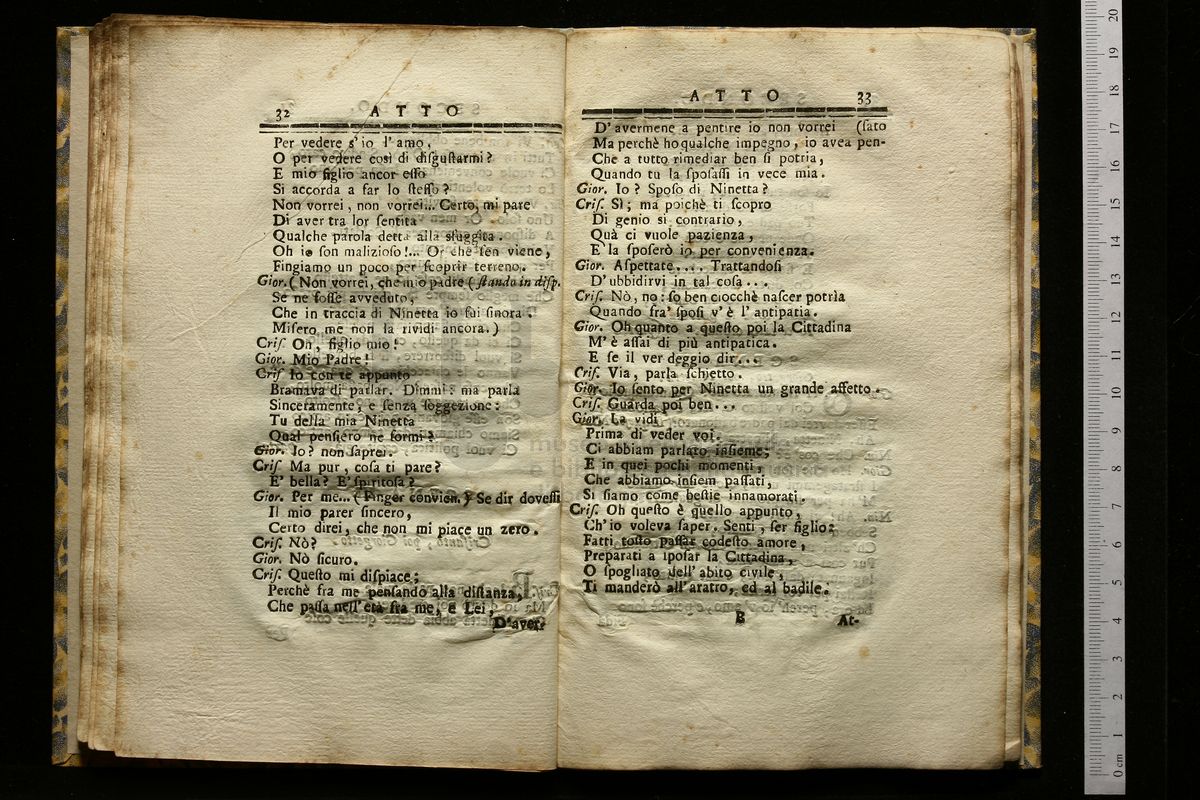 32 ATTO
Per vedere s' io l' amo.
O per vedere così di diſguſtarmi?
E mio figlio ancor eſſo
Si accorda a far lo ſteſſo?
Non vorrei, non vorrei... Certo, mi pare
Di aver tra lor ſentita
Qualche parola detta alla sfuggita.
Oh io ſon malizioſo!... Or che ſen viene,
Fingiamo un poco per ſcoprir terreno.
Gior. ( Non vorrei, che mio padre ( ſtando in diſp.
Se ne foſſe avveduto,
Che in traccia di Ninetta io fui finora.
Miſero me non la rividi ancora.)
Criſ. Oh, figlio mio!
Gior. Mio Padre!
Criſ Io con te appunto
Bramava di parlar. Dimmi: ma parla
Sinceramente, e ſenza ſoggezione:
Tu della mia Ninetta
Qual penſiero ne formi?
Gior. Io? non ſaprei.
Criſ. Ma pur, coſa ti pare?
E' bella? E' ſpiritoſa?
Gior. Per me... ( Finger convien. ) Se dir doveſſi
Il mio parer ſincero,
Certo direi, che non mi piace un zero.
Criſ. Nò?
Gior. Nò ſicuro.
Criſ. Queſto mi diſpiace;
Perchè fra me penſando alla diſtanza,
Che paſſa nell' età fra me, e Lei,
D'aver-
ATTO 33
D' avermene a pentire io non vorrei (ſato
Ma perchè ho qualche impegno, io avea pen-
Che a tutto rimediar ben ſi potria,
Quando tu la ſpoſaſſi in vece mia.
Gior. Io? Spoſo di Ninetta?
Criſ. Sì; ma poichè ti ſcopro
Di genio sì contrario,
Quà ci vuole pazienza,
E la ſpoſerò io per convenienza.
Gior. Aſpettate.... Trattandoſi
D' ubbidirvi in tal coſa...
Criſ. Nò, no: ſo ben ciocchè naſcer potrìa
Quando fra' ſpoſi v' è l' antipatia.
Gior. Oh quanto a queſto poi la Cittadina
M' è aſſai di più antipatica.
E ſe il ver deggio dir...
Criſ. Via, parla ſchietto.
Gior. Io ſento per Ninetta un grande affetto.
Criſ. Guarda poi ben...
Gior. La vidi
Prima di veder voi.
Ci abbiam parlato inſieme;
E in quei pochi momenti,
Che abbiamo inſiem paſſati,
Si ſiamo come beſtie innamorati.
Criſ. Oh queſto è quello appunto,
Ch' io voleva ſaper. Senti, ſer figlio:
Fatti toſto paſſar codeſto amore,
Preparati a ſpoſar la Cittadina,
O ſpogliato dell' abito civile,
Ti manderò all' aratro, ed al badile.
B At-